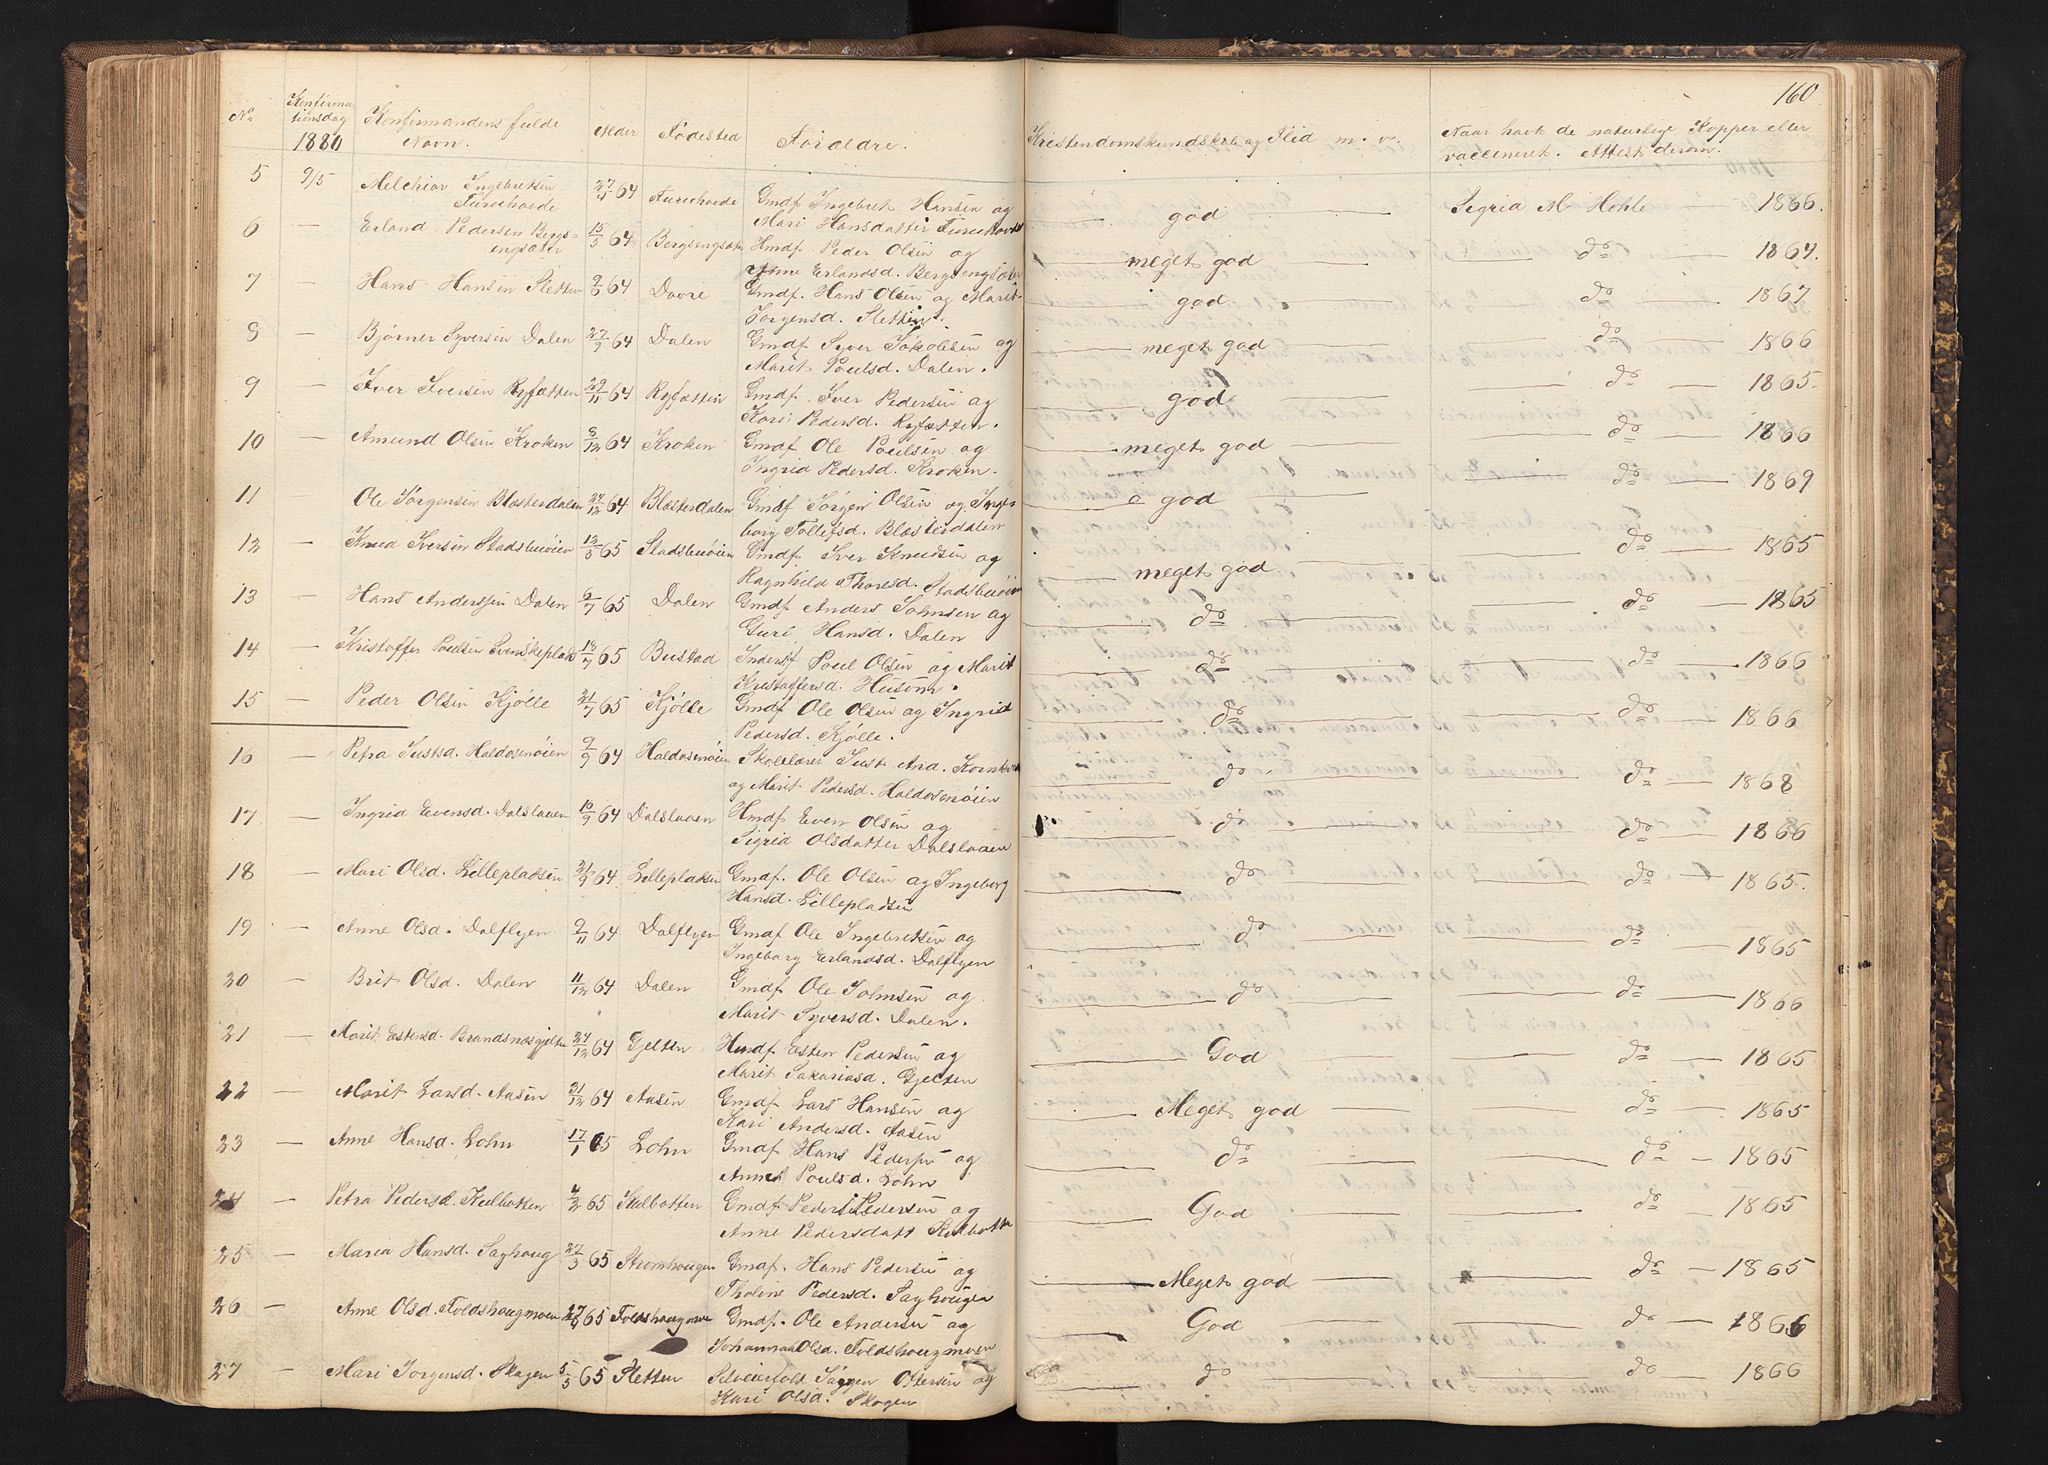 160
No Konfirma Konfirmandens fulde Alder Fødested Forældre. Kristendomskundskab og Flid m. v. Naar havt de naturlige Kopper eller
tionsdag Navn. vaccineret. Attest derom.
1880
5 9/5 Melchior Ingebretsen 64 Furuhovde Gmdf Ingebret Hansen og god Sigrid M Hohle 1866.
Furuhovde Mari Hansdatter Furuhovde
6 — Erland Pedersen Bergs- 15/5 64 Bergsengsæter Hmdf Peder Olsen og meget god do 1864.
engsæter Anne Erlandsd. Bergsengsæter
7 — Hans Hansen Sletten 64 Dovre Gmdf. Hans Olsen og Marit god do 1867
Jørgensd. Sletten.
8 — Bjørner Syversen Dalen 27/9 64 Dalen Gmdf Syver Jakobsen og meget god do 1866
Marit Poulsd. Dalen.
9 — Iver Iversen Ryfætten 29/11 64 Ryfætten Gmdf. Iver Pedersen og god do 1865.
Kari Pedersd. Ryfætten.
10 — Amund Olsen Kroken 8/12 64 Kroken Gmdf Ole Poulsen og meget god do 1866
Ingrid Pedersd. Kroken.
11 — Ole Jørgensen Blæsterdalen 24/12 64 Blæsterdalen Gmdf Jørgen Olsen og Inge god do 1869
borg Tollefsd. Blæsterdalen
12 — Knud Iversen Stadsbuøien 12/5 65 Stadsbuøien Gmdf. Iver Knudsen og meget god do 1865
Ragnhild Thoresd. Stadsbuøien
13 — Hans Anderssen Dalen 6/7 65 Dalen Gmdf Anders Johnsen og do do 1865
Guri Hansd. Dalen
14 — Kristoffer Poulsen Svenskeplads 13/7 65 Bustad Inders Poul Olsen og Marit do do 1866
Kristoffersd. Husom.
15 — Peder Olsen Kjølle 21/7 65 Kjølle Gmdf Ole Olsen og Ingrid do do 1866
Pedersd. Kjølle.
16 — Petra Justsd. Haldosmøien 9/9 64 Haldosmøien Skolelærer Just And. do do 1868
og Marit Pedersd. Haldosmøien
17 — Ingrid Evensd. Dalslaaen 10/9 64 Dalslaaen Hmdf Even Olsen og do do 1866
Sigrid Olsdatter Dalslaaen
18 — Mari Olsd. Lillepladsen 21/9 64 Lillepladsen Gmdf. Ole Olsen og Ingeborg do do 1865.
Hansd. Lillepladsen
19 — Anne Olsd. Dalflyen 9/11 64 Dalflyen Gmdf Ole Ingebretsen og do do 1865
Ingeborg Erlandsd. Dalflyen
20 — Brit Olsd. Dalen 11/12 64 Dalen Gmdf Ole Johnsen og do do 1866
Marit Syversd. Dalen.
21 — Marit Estensd. Brandsnæsgjelten 24/12 64 Gjelten Hmdf Esten Pedersen og God do 1865
Marit Sakariasd. Gjelten
22 — Marit Larsd. Aasen 31/12 64 Aasen Gmdf Lars Hansen og Meget god do 1865
Kari Andersd. Aasen
23 — Anne Hansd. Lohn 17/1 65 Lohn Gmdf Hans Peders og do do 1865
Anne Poulsd. Lohn
24 — Petra Pedersd. Kulbotten 4/2 65 Kulbotten Gmdf Peder Pedersen og God do 1865
Anne Pedersdatt Kulbotten
25 — Maria Hansd. Saghoug 27/3 65 Strømhougen Gmdf. Hans Pedersen og Meget god do 1865
Tholine Pedersd. Saghougen
26 — Anne Olsd. Foldshaugmoen 65 Foldshaugmoen Gmdf. Ole Andersen og God do 1866
Johanna Olsd. Foldshaugmoen
27 — Mari Jørgensd. Skogen 5/5 65 Sletten Jørgen Ostersen og do do 1866
Kari Olsd. Skogen